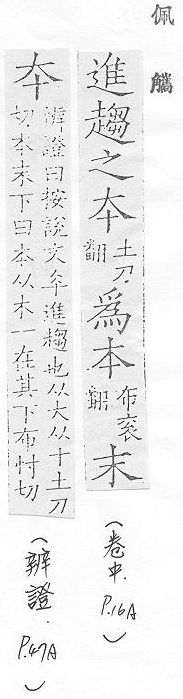 佩觿
進趨之夲土刀翻爲本布衮翻末
(卷中. P.16A)
夲
辨證曰按說文夲進趨也从大从十土刀
切本末下曰本从木一在其下布忖切
(辨證. P.47A)